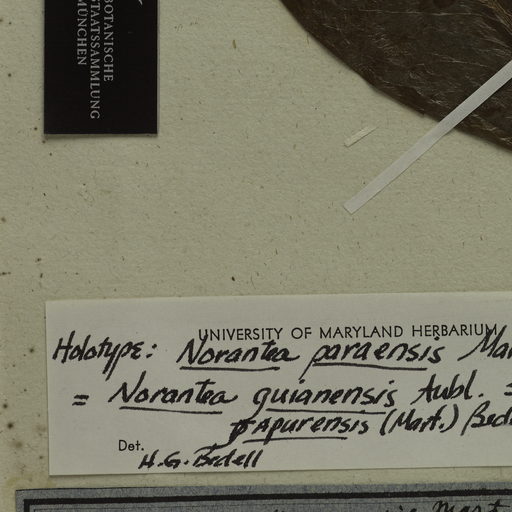 BOTANISCHE
STAATSSAMMLUNG
MÜNCHEN
UNIVERSITY OF MARYLAND HERBARIUM
Holotype: Norantea paraensis Mar
= Norantea guianensis Aubl. =
japurensis (Mart.) Bed
Det.
H.G. Bedell
Mart